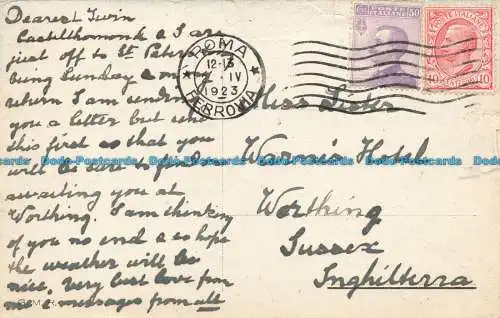 Dearest Twin
Castelthomond & I are
just off to St Peters
being Sunday & on my
return I am sending
you a letter but
this first so that you
will be sure to find
awaiting you at
Worthing. I am thinking
of you no end & so hope
the weather will be
nice. Very best love from
me & messages from all
ROMA
12-13
IV
1923
FERROVIA
POSTE ITALIANE
50
POSTE ITALIANE
10
Miss Lister
Warne's Hotel
Worthing
Sussex
Inghilterra
Dodo-Postcards Dodo-Postcards Dodo-Postcards Dodo-Postcards Dodo-Postcards